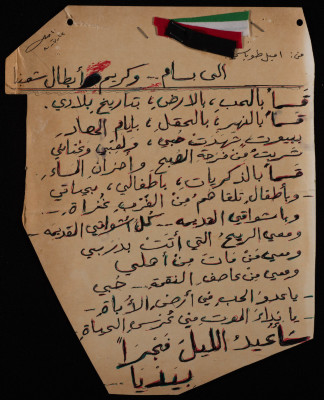 من: اميل طوباسي
الى بسام .. وكريم وأبطال شعبنا
قسماً بالحب، بالارض، بتاريخ بلادي.
قسماً بالنهر، بالحقل،
بيروت حبي، ولهيبي وعنابي
شربت من فرحة الصبح وأحزان المساء
قسماً بالذكريات، بأطفالي، بحياتي
وبأطفال تلقاهم من القرب غزاة ..
وباشواقي القديمه .. كل اشواقي القديمه ..
ومعي الريح التي أتت بدربي
ومعي من مات من أهلي
ومعي من عاصف النقمة .. حبي
يا عدو الحب في أرض الأباة ..
يا نداء الموت في عرس الحياة
سأعيد الليل فجراً
بيديا ..